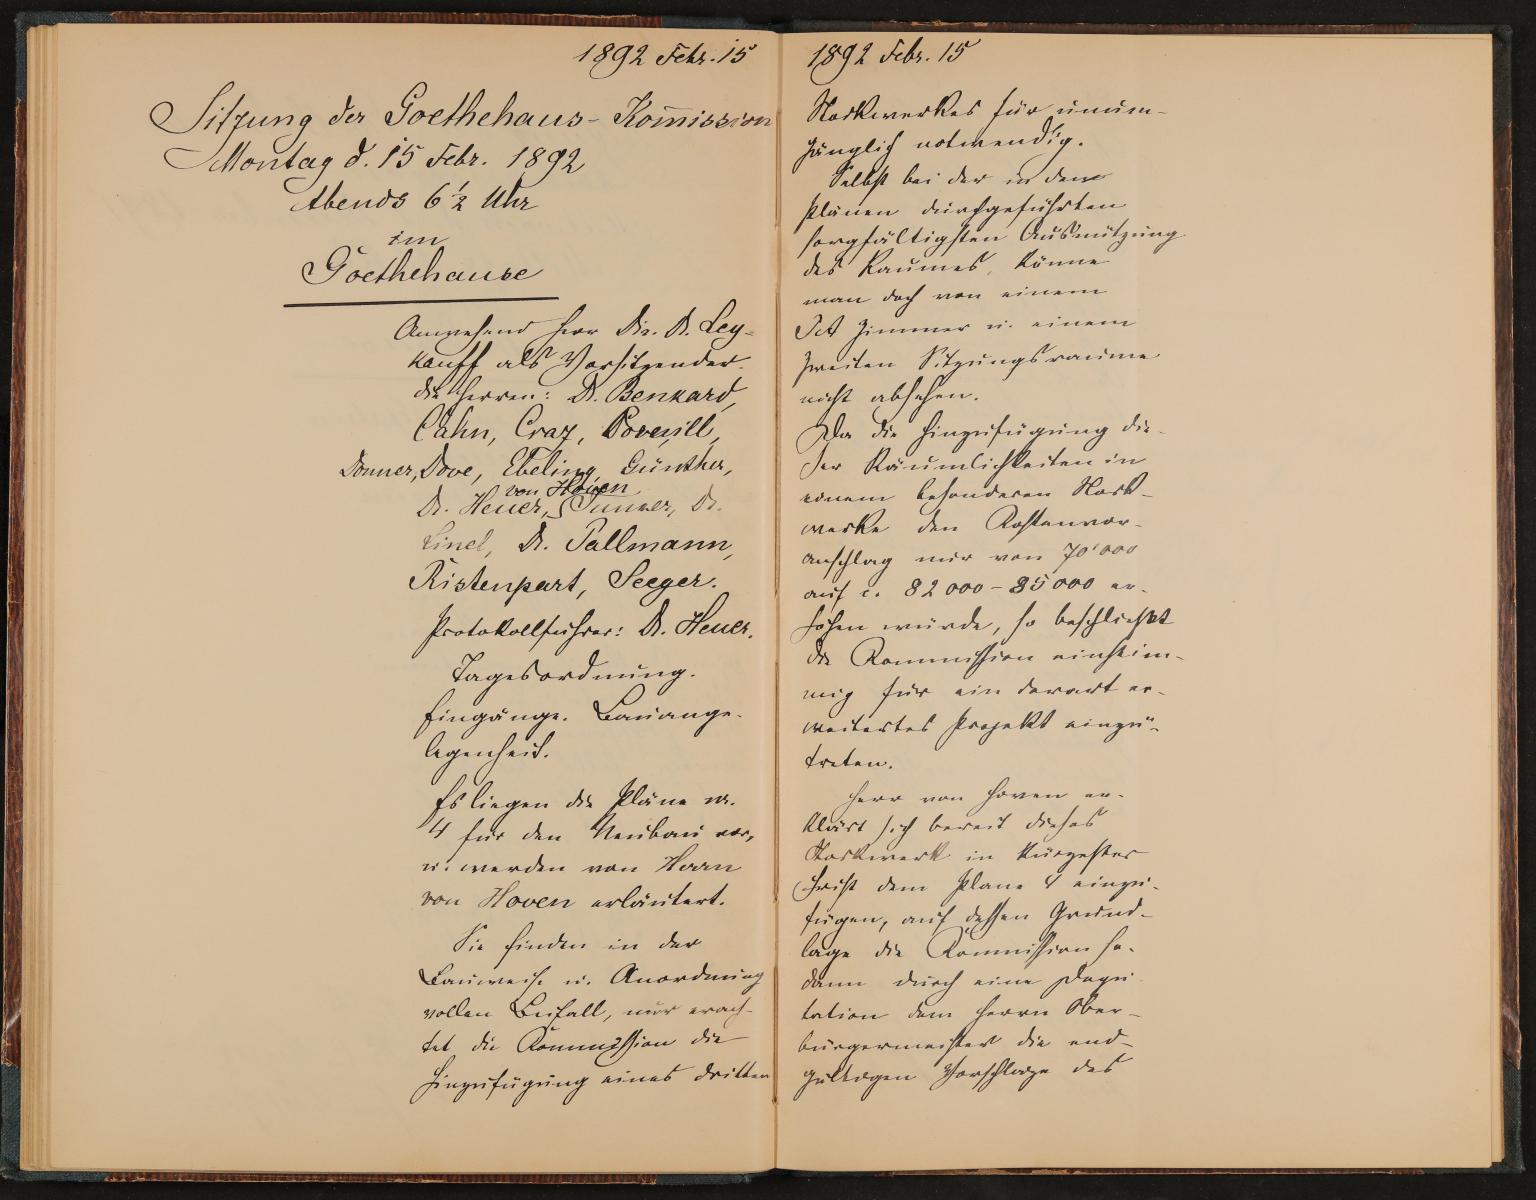 1892 Febr. 15
Sitzung der Goethehaus-Kom̅ission
Montag d. 15 Febr. 1892
Abends 6 1/2 Uhr
im
Goethehause
Anwesend Herr Dir. Dr. Ley-
kauff als Vorsitzender.
die Herren: Dr. Benkard,
Cahn, Craz,
Donner, Dove, Ebeling, Günther,
von Hoven
Dr. Heuer, Junker, Dr.
Linel, Dr. Pallmann,
Ristenpart, Seeger.
Protokollführer: Dr. Heuer.
Tagesordnung.
Eingänge. Bauange-
legenheit.
Es liegen die Pläne nr.
4 für den Neubau vor,
u. werden von Herrn
von Hoven erläutert.
Sie finden in der
Bauweise u. Anordnung
vollen Beifall, nur erach-
tet die Kommission die
Hinzufügung eines dritten
1892 Febr. 15
Stockwerkes für unum-
gänglich notwendig.
Selbst bei der in den
Plänen durchgeführten
sorgfältigsten Ausnützung
des Raumes, könne
man doch von einem
Zimmer u. einem
zweiten Sitzungsraume
nicht absehen.
Da die Hinzufügung die-
ser Räumlichkeiten in
einem besonderen Stock-
werke den Kostenvor-
anschlag nur von 70'000
auf c. 82000-85000 er-
höhen würde, so beschließt
die Kommission einstim-
mig für ein derart er-
weitertes Projekt einzu-
treten.
Herr von Hoven er-
klärt sich bereit dieses
Stockwerk in kürzester
Frist dem Plane 4 einzu-
fügen, auf dessen Grund-
lage die Kommission so-
dann durch eine Depu-
tation dem Herrn Ober-
bürgermeister die end-
gültigen Vorschläge des